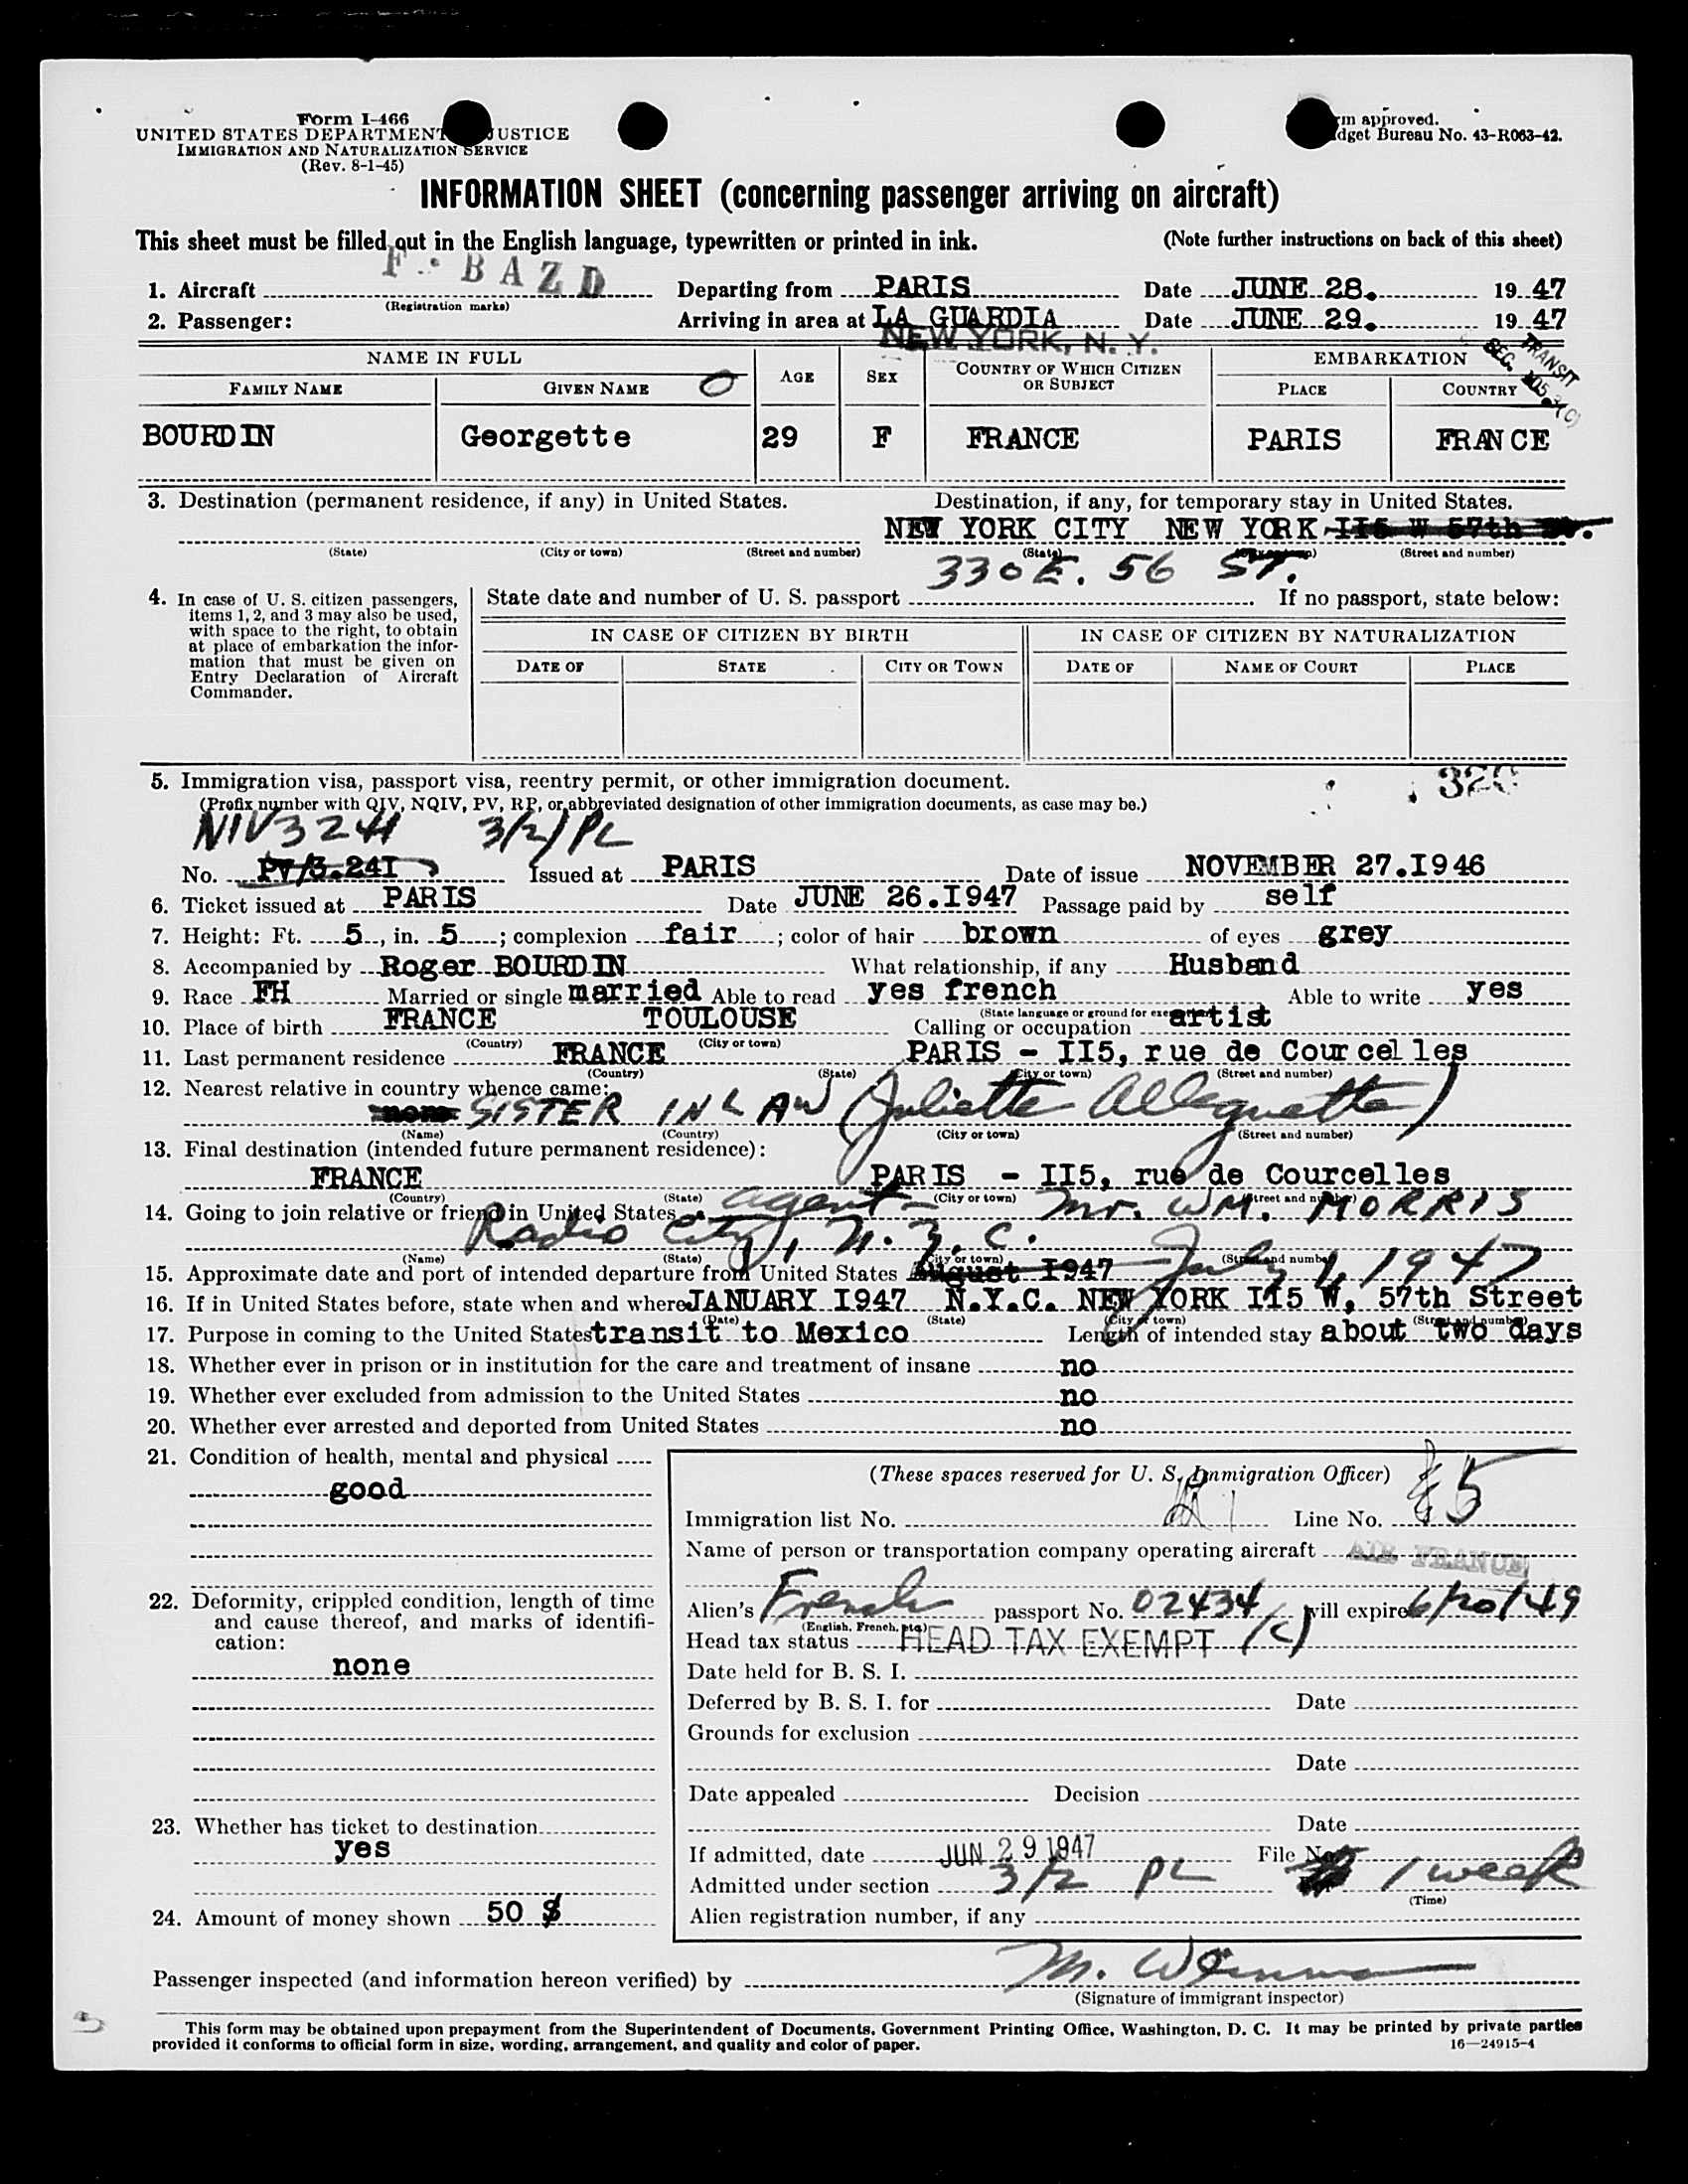 Form I-466
UNITED STATES DEPARTMENT JUSTICE
IMMIGRATION AND NATURALIZATION SERVICE
(Rev. 8-1-45)
approved.
Bureau No. 43-R063-42.
INFORMATION SHEET (concerning passenger arriving on aircraft)
This sheet must be filled out in the English language, typewritten or printed in ink. (Note further instructions on back of this sheet)
1. Aircraft F. BAZD Departing from PARIS Date JUNE 28. 1947
(Registration marks)
2. Passenger: Arriving in area at LA GUARDIA Date JUNE 29. 1947
NEW YORK, N. Y.
NAME IN FULL AGE SEX COUNTRY OF WHICH CITIZEN OR SUBJECT EMBARKATION
TRANSIT
SEC.
FAMILY NAME GIVEN NAME O PLACE COUNTRY
BOURDIN Georgette 29 F FRANCE PARIS FRANCE
3. Destination (permanent residence, if any) in United States. Destination, if any, for temporary stay in United States.
NEW YORK CITY NEW YORK II5 W 57th St.
(State) (City or town) (Street and number) (State) (Street and number)
330 E. 56 ST.
4. In case of U. S. citizen passengers, items 1, 2, and 3 may also be used, with space to the right, to obtain at place of embarkation the information that must be given on Entry Declaration of Aircraft Commander.
State date and number of U. S. passport . If no passport, state below:
IN CASE OF CITIZEN BY BIRTH IN CASE OF CITIZEN BY NATURALIZATION
DATE OF STATE CITY OR TOWN DATE OF NAME OF COURT PLACE
5. Immigration visa, passport visa, reentry permit, or other immigration document.
(Prefix number with QIV, NQIV, PV, RP, or abbreviated designation of other immigration documents, as case may be.)
NIV 3241 3/2/PL
No. PV/3.24I Issued at PARIS Date of issue NOVEMBER 27.I946
6. Ticket issued at PARIS Date JUNE 26.I947 Passage paid by self
7. Height: Ft. 5, in. 5; complexion fair; color of hair brown of eyes grey
8. Accompanied by Roger BOURDIN What relationship, if any Husband
9. Race FH Married or single married Able to read yes french Able to write yes
10. Place of birth FRANCE TOULOUSE Calling or occupation artist
(Country) (City or town)
11. Last permanent residence FRANCE PARIS - II5, rue de Courcelles
(Country) (State) (City or town) (Street and number)
12. Nearest relative in country whence came:
none SISTER IN LAW (Juliette Alleguette)
(Name) (Country) (City or town) (Street and number)
13. Final destination (intended future permanent residence):
FRANCE PARIS - II5, rue de Courcelles
(Country) (State) (City or town) (Street and number)
14. Going to join relative or friend in United States agent - Mr. WM. MORRIS
Radio City, N. Y. C.
(Name) (State) (City or town) (Street and number)
15. Approximate date and port of intended departure from United States August I947 July 1, 1947
16. If in United States before, state when and where JANUARY I947 N.Y.C. NEW YORK II5 W. 57th Street
(Date) (State) (City or town) (Street and number)
17. Purpose in coming to the United States transit to Mexico Length of intended stay about two days
18. Whether ever in prison or in institution for the care and treatment of insane no
19. Whether ever excluded from admission to the United States no
20. Whether ever arrested and deported from United States no
21. Condition of health, mental and physical
good
22. Deformity, crippled condition, length of time and cause thereof, and marks of identification:
none
23. Whether has ticket to destination
yes
24. Amount of money shown 50 $
(These spaces reserved for U. S. Immigration Officer)
Immigration list No. Line No. 5
Name of person or transportation company operating aircraft AIR FRANCE
Alien's French passport No. 02434 will expire 6/20/49
(English, French, etc.)
Head tax status HEAD TAX EXEMPT (C)
Date held for B. S. I.
Deferred by B. S. I. for Date
Grounds for exclusion
Date
Date appealed Decision
Date
If admitted, date JUN 29 1947 File No.
Admitted under section 3/2 PL 1 week
(Time)
Alien registration number, if any
Passenger inspected (and information hereon verified) by
(Signature of immigrant inspector)
This form may be obtained upon prepayment from the Superintendent of Documents, Government Printing Office, Washington, D. C. It may be printed by private parties
provided it conforms to official form in size, wording, arrangement, and quality and color of paper. 16—24915-4